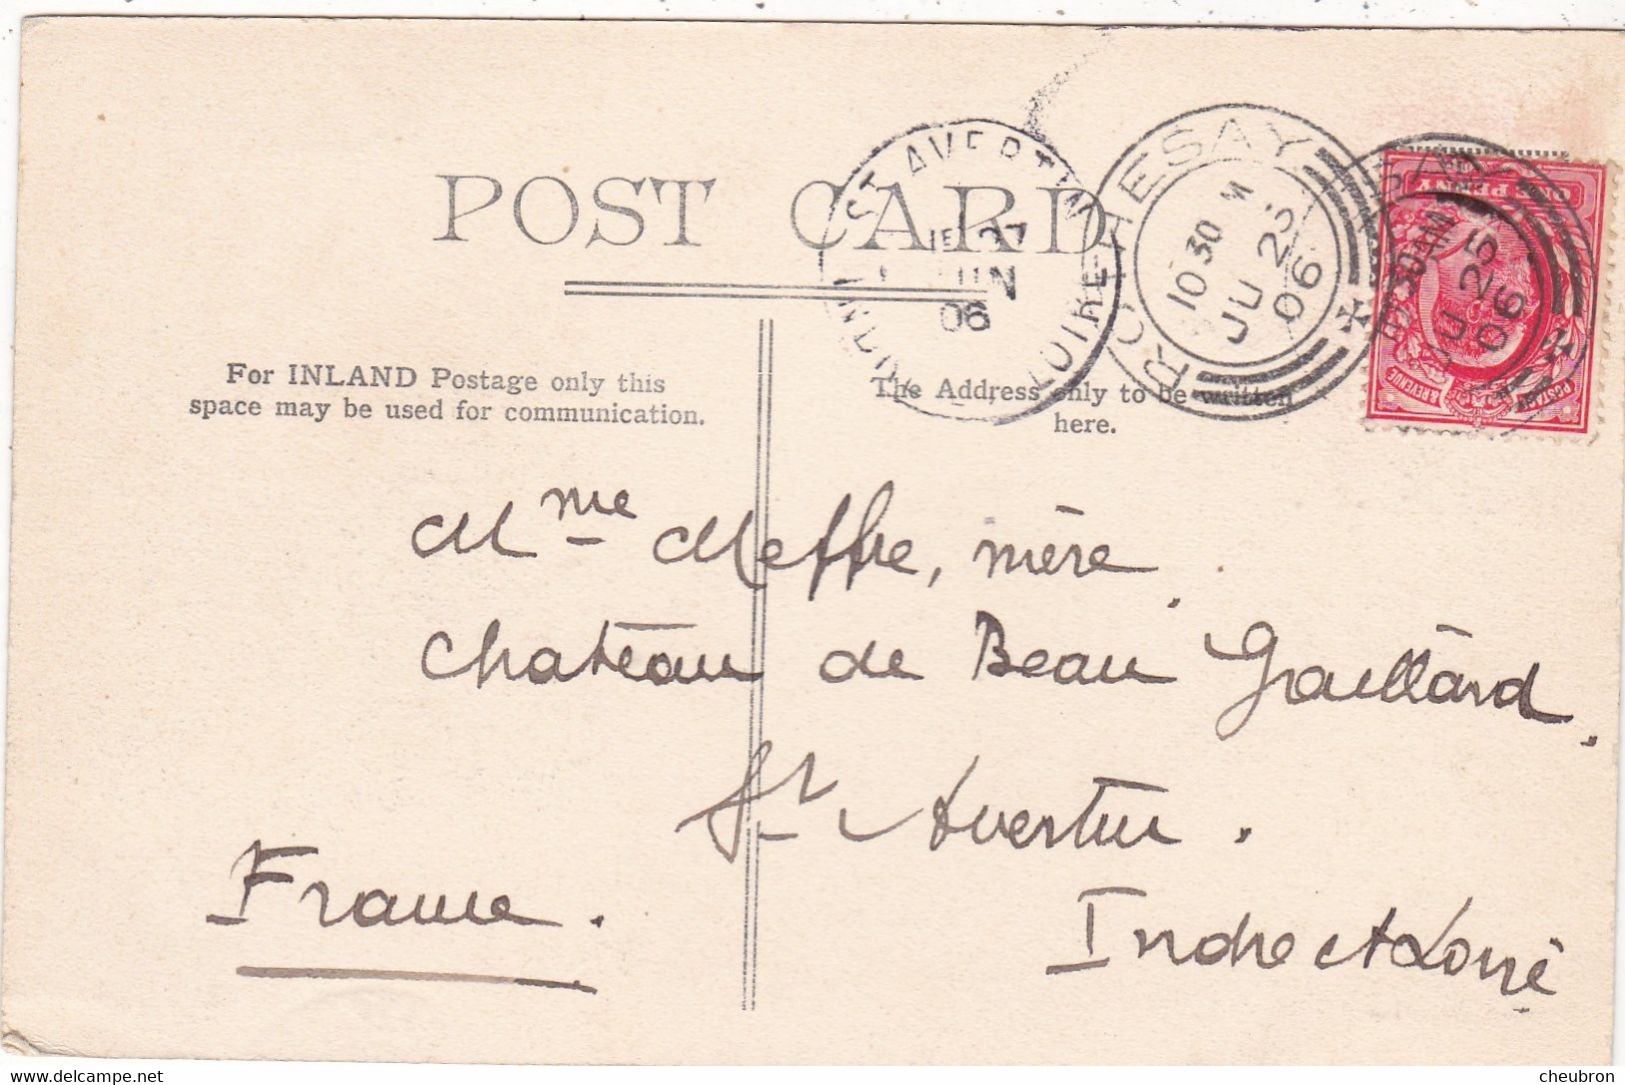 POST CARD
ST AVERTIN
27
JUIN
06
ROTHESAY
10 30 M
JU 25
06
JU 25
06
ONE PENNY
POSTAGE & REVENUE
For INLAND Postage only this
space may be used for communication.
The Address only to be written
here.
Mme Meffre, mère.
Château de Beau Gaillard.
St Avertin.
Indre et Loire
France.
www.delcampe.net
cheubron